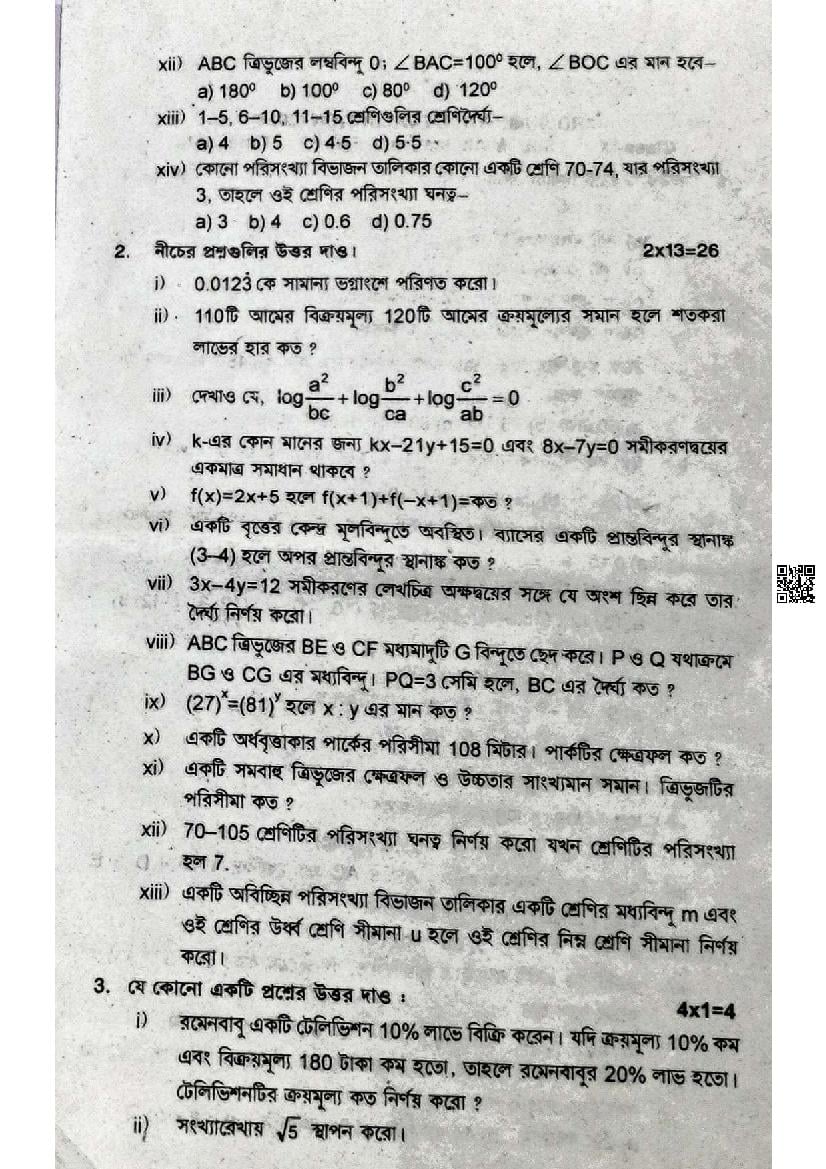 xii) ABC ত্রিভুজের লম্ববিন্দু 0; ∠BAC=100° হলে, ∠BOC এর মান হবে–
a) 180° b) 100° c) 80° d) 120°
xiii) 1–5, 6–10, 11–15 শ্রেণিগুলির শ্রেণিদৈর্ঘ্য–
a) 4 b) 5 c) 4·5 d) 5·5
xiv) কোনো পরিসংখ্যা বিভাজন তালিকার কোনো একটি শ্রেণি 70-74, যার পরিসংখ্যা
3, তাহলে ওই শ্রেণির পরিসংখ্যা ঘনত্ব–
a) 3 b) 4 c) 0.6 d) 0.75
2. নীচের প্রশ্নগুলির উত্তর দাও। 2x13=26
i) 0.0123̇ কে সামান্য ভগ্নাংশে পরিণত করো।
ii) 110টি আমের বিক্রয়মূল্য 120টি আমের ক্রয়মূল্যের সমান হলে শতকরা
লাভের হার কত ?
iii) দেখাও যে, log a²/bc + log b²/ca + log c²/ab = 0
iv) k-এর কোন মানের জন্য kx–21y+15=0 এবং 8x–7y=0 সমীকরণদ্বয়ের
একমাত্র সমাধান থাকবে ?
v) f(x)=2x+5 হলে f(x+1)+f(–x+1)=কত ?
vi) একটি বৃত্তের কেন্দ্র মূলবিন্দুতে অবস্থিত। ব্যাসের একটি প্রান্তবিন্দুর স্থানাঙ্ক
(3–4) হলে অপর প্রান্তবিন্দুর স্থানাঙ্ক কত ?
vii) 3x–4y=12 সমীকরণের লেখচিত্র অক্ষদ্বয়ের সঙ্গে যে অংশ ছিন্ন করে তার
দৈর্ঘ্য নির্ণয় করো।
viii) ABC ত্রিভুজের BE ও CF মধ্যমাদুটি G বিন্দুতে ছেদ করে। P ও Q যথাক্রমে
BG ও CG এর মধ্যবিন্দু। PQ=3 সেমি হলে, BC এর দৈর্ঘ্য কত ?
ix) (27)ˣ=(81)ʸ হলে x : y এর মান কত ?
x) একটি অর্ধবৃত্তাকার পার্কের পরিসীমা 108 মিটার। পার্কটির ক্ষেত্রফল কত ?
xi) একটি সমবাহু ত্রিভুজের ক্ষেত্রফল ও উচ্চতার সাংখ্যমান সমান। ত্রিভুজটির
পরিসীমা কত ?
xii) 70–105 শ্রেণিটির পরিসংখ্যা ঘনত্ব নির্ণয় করো যখন শ্রেণিটির পরিসংখ্যা
হল 7.
xiii) একটি অবিচ্ছিন্ন পরিসংখ্যা বিভাজন তালিকার একটি শ্রেণির মধ্যবিন্দু m এবং
ওই শ্রেণির উর্ধ্ব শ্রেণি সীমানা u হলে ওই শ্রেণির নিম্ন শ্রেণি সীমানা নির্ণয়
করো।
3. যে কোনো একটি প্রশ্নের উত্তর দাও :
4x1=4
i) রমেনবাবু একটি টেলিভিশন 10% লাভে বিক্রি করেন। যদি ক্রয়মূল্য 10% কম
এবং বিক্রয়মূল্য 180 টাকা কম হতো, তাহলে রমেনবাবুর 20% লাভ হতো।
টেলিভিশনটির ক্রয়মূল্য কত নির্ণয় করো ?
ii) সংখ্যারেখায় √5 স্থাপন করো।